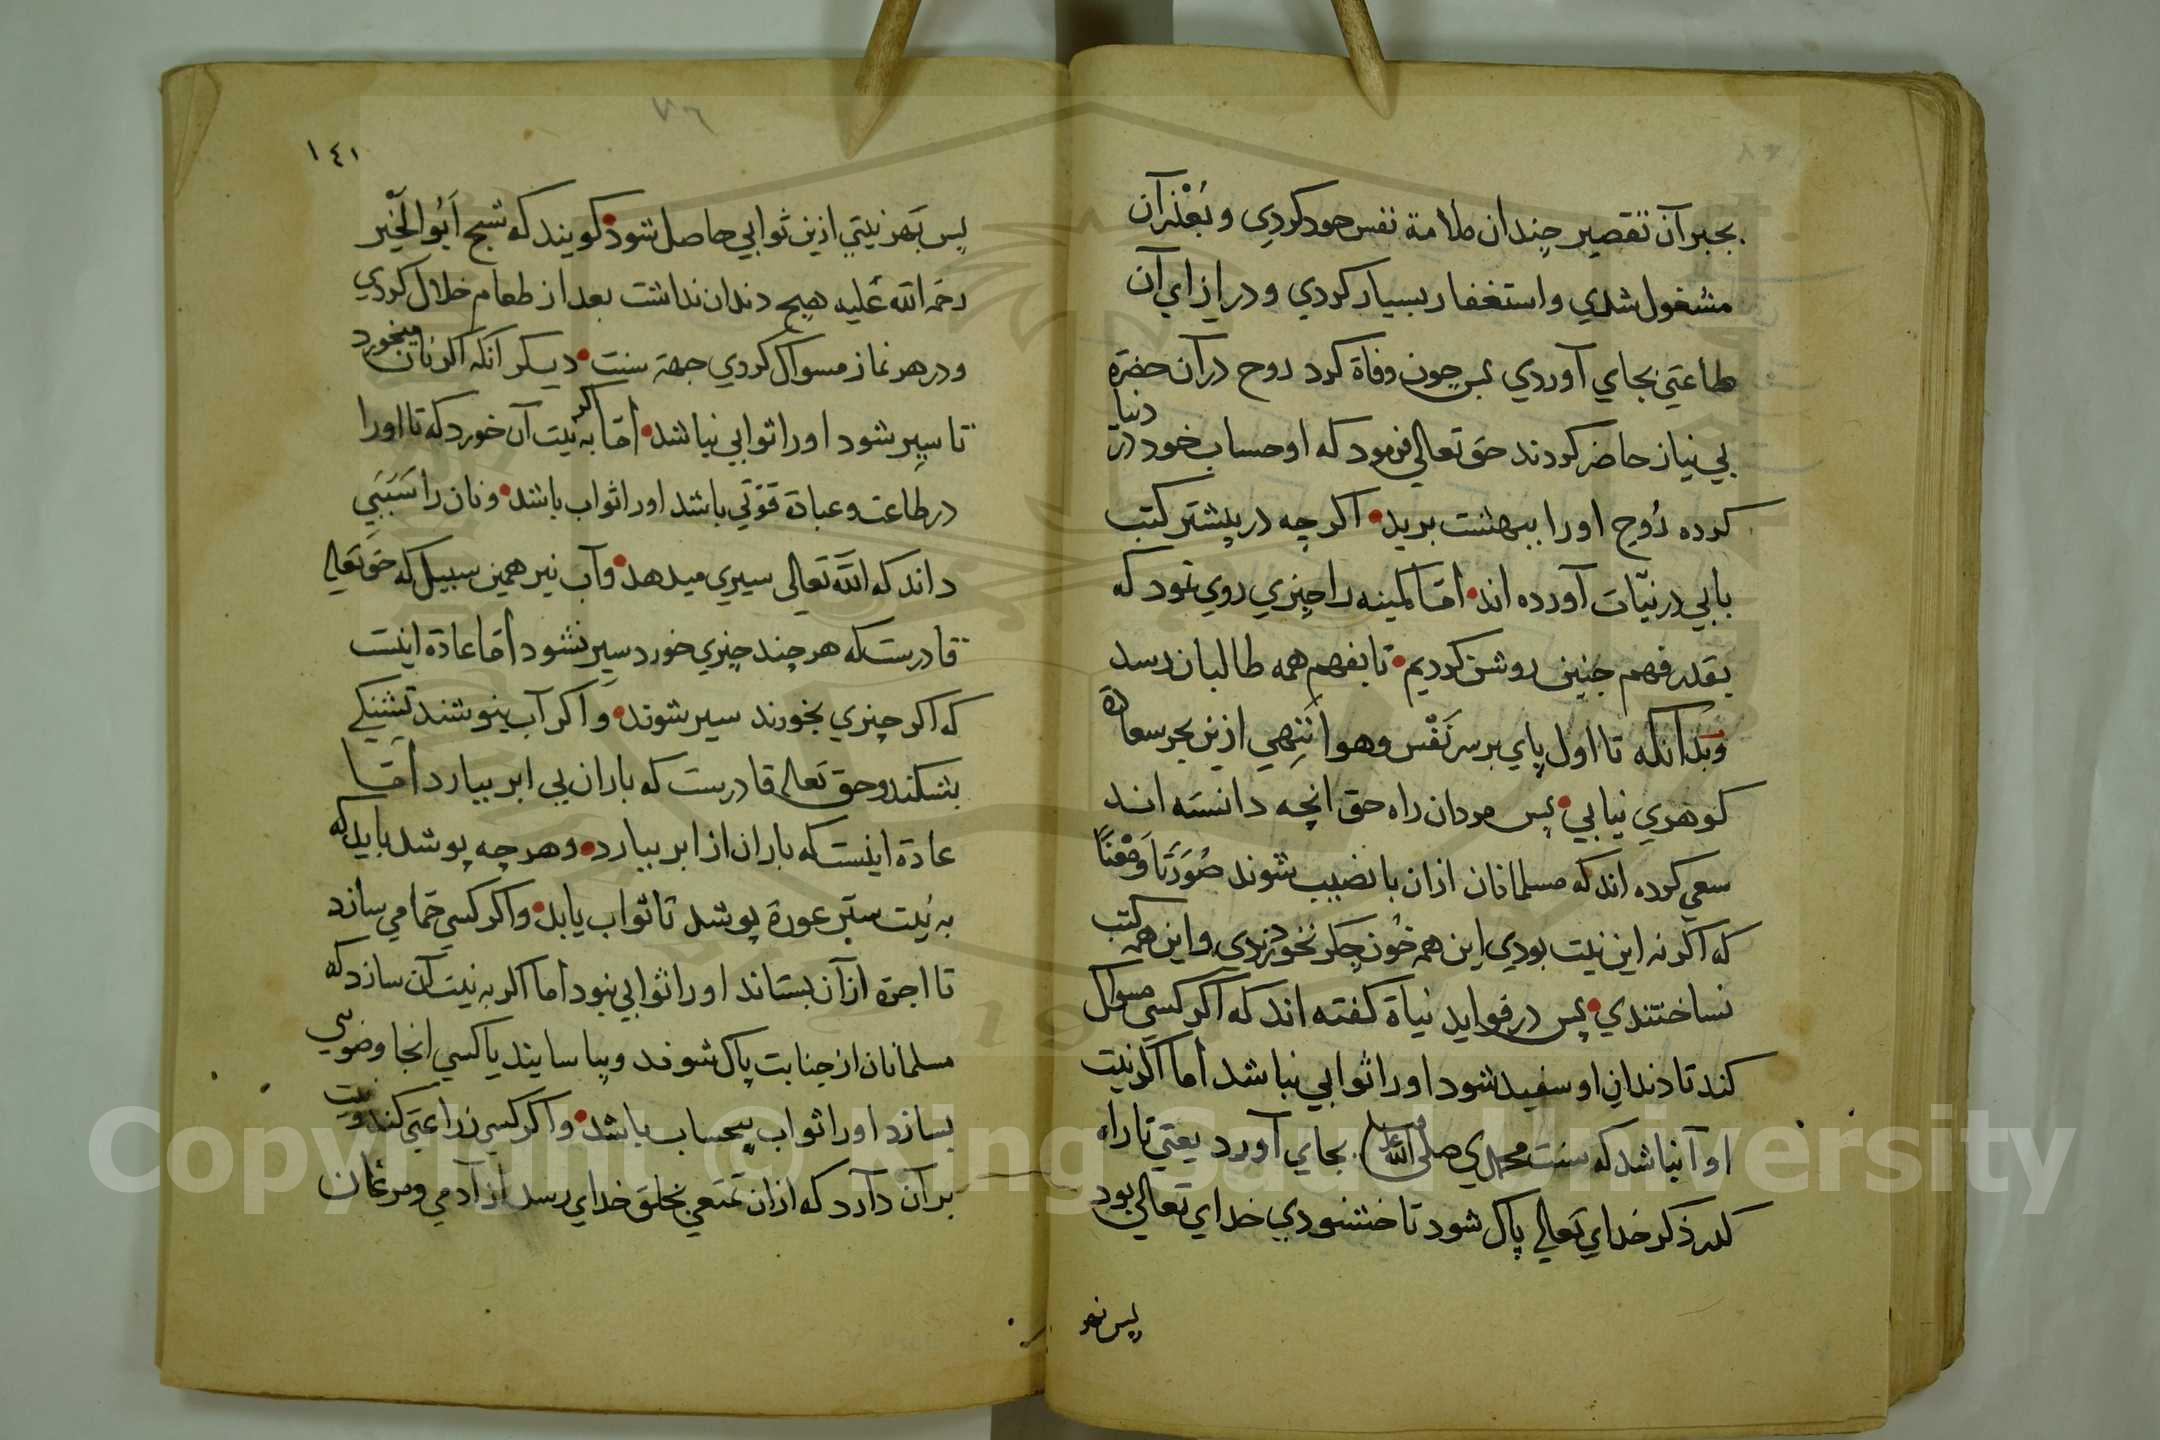 بجبر آن تقصیر چندان ملامة نفس خود کردي و بعذر آن
مشغول شدي و استغفار بسیار کردي و در ازاي آن
طاعتي بجاي آوردي پس چون وفاة کرد روح در آن حضرة
بي نیاز حاضر کردند حق تعالي فرمود که او حساب خود در دنیا
کرده روح او را ببهشت برید • اکرچه در پیشتر کتب
بابي در نیّات آورده اند • امّا کمینه را چیزي روي نمود که
بقدر فهم چنین روشن کردیم • تا بفهم همه طالبان رسد
وبدانکه تا اول پاي بر سر نَفْس وهوا ننهي ازین بحر سعادة
کوهري نیابي • پس مردان راه حق انچه دانسته اند
سعي کرده اند که مسلمانان ازان با نصیب شوند صُوَرَتًا وَمَعْنًا
که اکر نه این نیت بودي این همه خون جکر نخوردندي و این همه کتب
نساختندي • پس در فواید نیاة کفته اند که اکر کسي مسواک
کند تا دندان او سفید شود او را ثوابي نباشد اما اکر نیت
او آن باشد که سنت محمدي صلى الله بجاي آورد یعني تا راه
کذر ذکر خداي تعالي پاک شود تا خشنودي خداي تعالي بود
پس بهر
١٤١
پس بَهر نیتي ازین ثوابي حاصل شود • کویند که شیخ اَبُو الخَیر
رحمة الله علیه هیچ دندان نداشت بعد از طعام خلال کردي
و در هر نماز مسواک کردي جهة سنت • دیکر انکه اکر نان میخورد
تا سیر شود او را ثوابي نباشد • امّا اکر به نیت آن خورد که تا او را
در طاعت و عبادة قوّتي باشد او را ثواب باشد • و نان را سَبَبي
داند که الله تعالی سیري میدهد • و آب نیز همین سبیل که حق تعالی
قادرست که هر چند چیزي خورد سیر نشود امّا عادة اینست
که اکر چیزي بخورند سیر شوند • و اکر آب بنوشند تشنکي
بشکند و حق تعالی قادرست که باران بي ابر ببارد امّا
عادة اینست که باران از ابر ببارد • و هر چه پوشد باید که
به نیت ستر عورة پوشد تا ثواب یابد • و اکر کسي حمّامي سازد
تا اجرة ازان بستاند او را ثوابي نبود اما اکر به نیت آن سازد که
مسلمانان از جنابت پاک شوند و بیاسایند یا کسي انجا وضویي
بسازد او را ثواب بیحساب باشد • و اکر کسي زراعتي کند و نیت
بر آن دارد که ازان تمتعي بخلق خداي رسد از آدمي و مرغان
Copyright © King Saud University